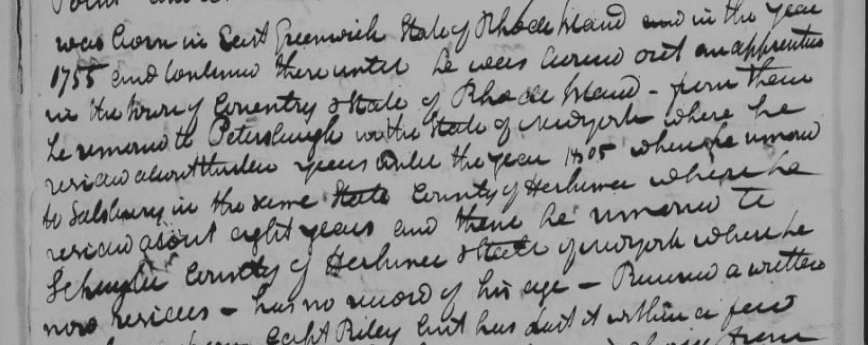 was born in East Greenwich State of Rhode Island and in the year
1755 and continued there until he was bound out an apprentice
in the town of Coventry State of Rhode Island - from there
he removed to Petersburgh in the State of Newyork where he
resided about years the year 1805 when he removed
to Salsbury in the same State County of Herkimer where he
resided about eight years and there he removed to
Schuyler County of Herkimer State of Newyork where he
now resides - has no record of his age - Received a written
Capt Riley but has lost it within a few
from